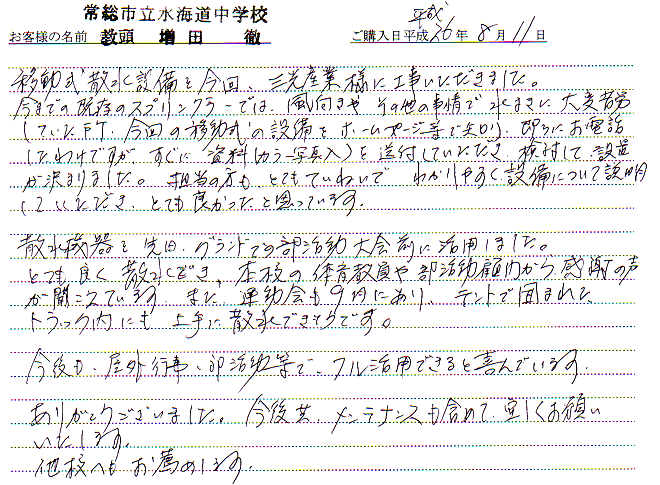 常総市立水海道中学校
平成
お客様の名前 教頭 増田 徹 ご購入日平成26年8月11日
移動式散水設備を今回、三光産業様に工事いただきました。
今までの既存のスプリンクラーでは、風向きや その他の事情で水まきに 大変苦労
していた所、今回の移動式の設備をホームページ等で知り、即にお電話
したわけですが、すぐに 資料(カラー写真入)を送付していただき 検討して 設置
が決まりました。担当の方も、とてもていねいで わかりやすく設備について説明
していただき、とても良かったと思っています。
散水機器を 先日、グランドでの部活動大会前に活用しました。
とても良く 散水でき、本校の 体育教員や部活動顧問から感謝の声
が聞こえています。また、運動会も9月にあり、テントで囲まれた
トラック内にも 上手に散水できそうです。
今後も、屋外行事・部活動等で、フル活用できると喜んでいます。
ありがとうございました。今後共、メンテナンスも含めて、宜しくお願い
いたします。
他校へも お薦めします。